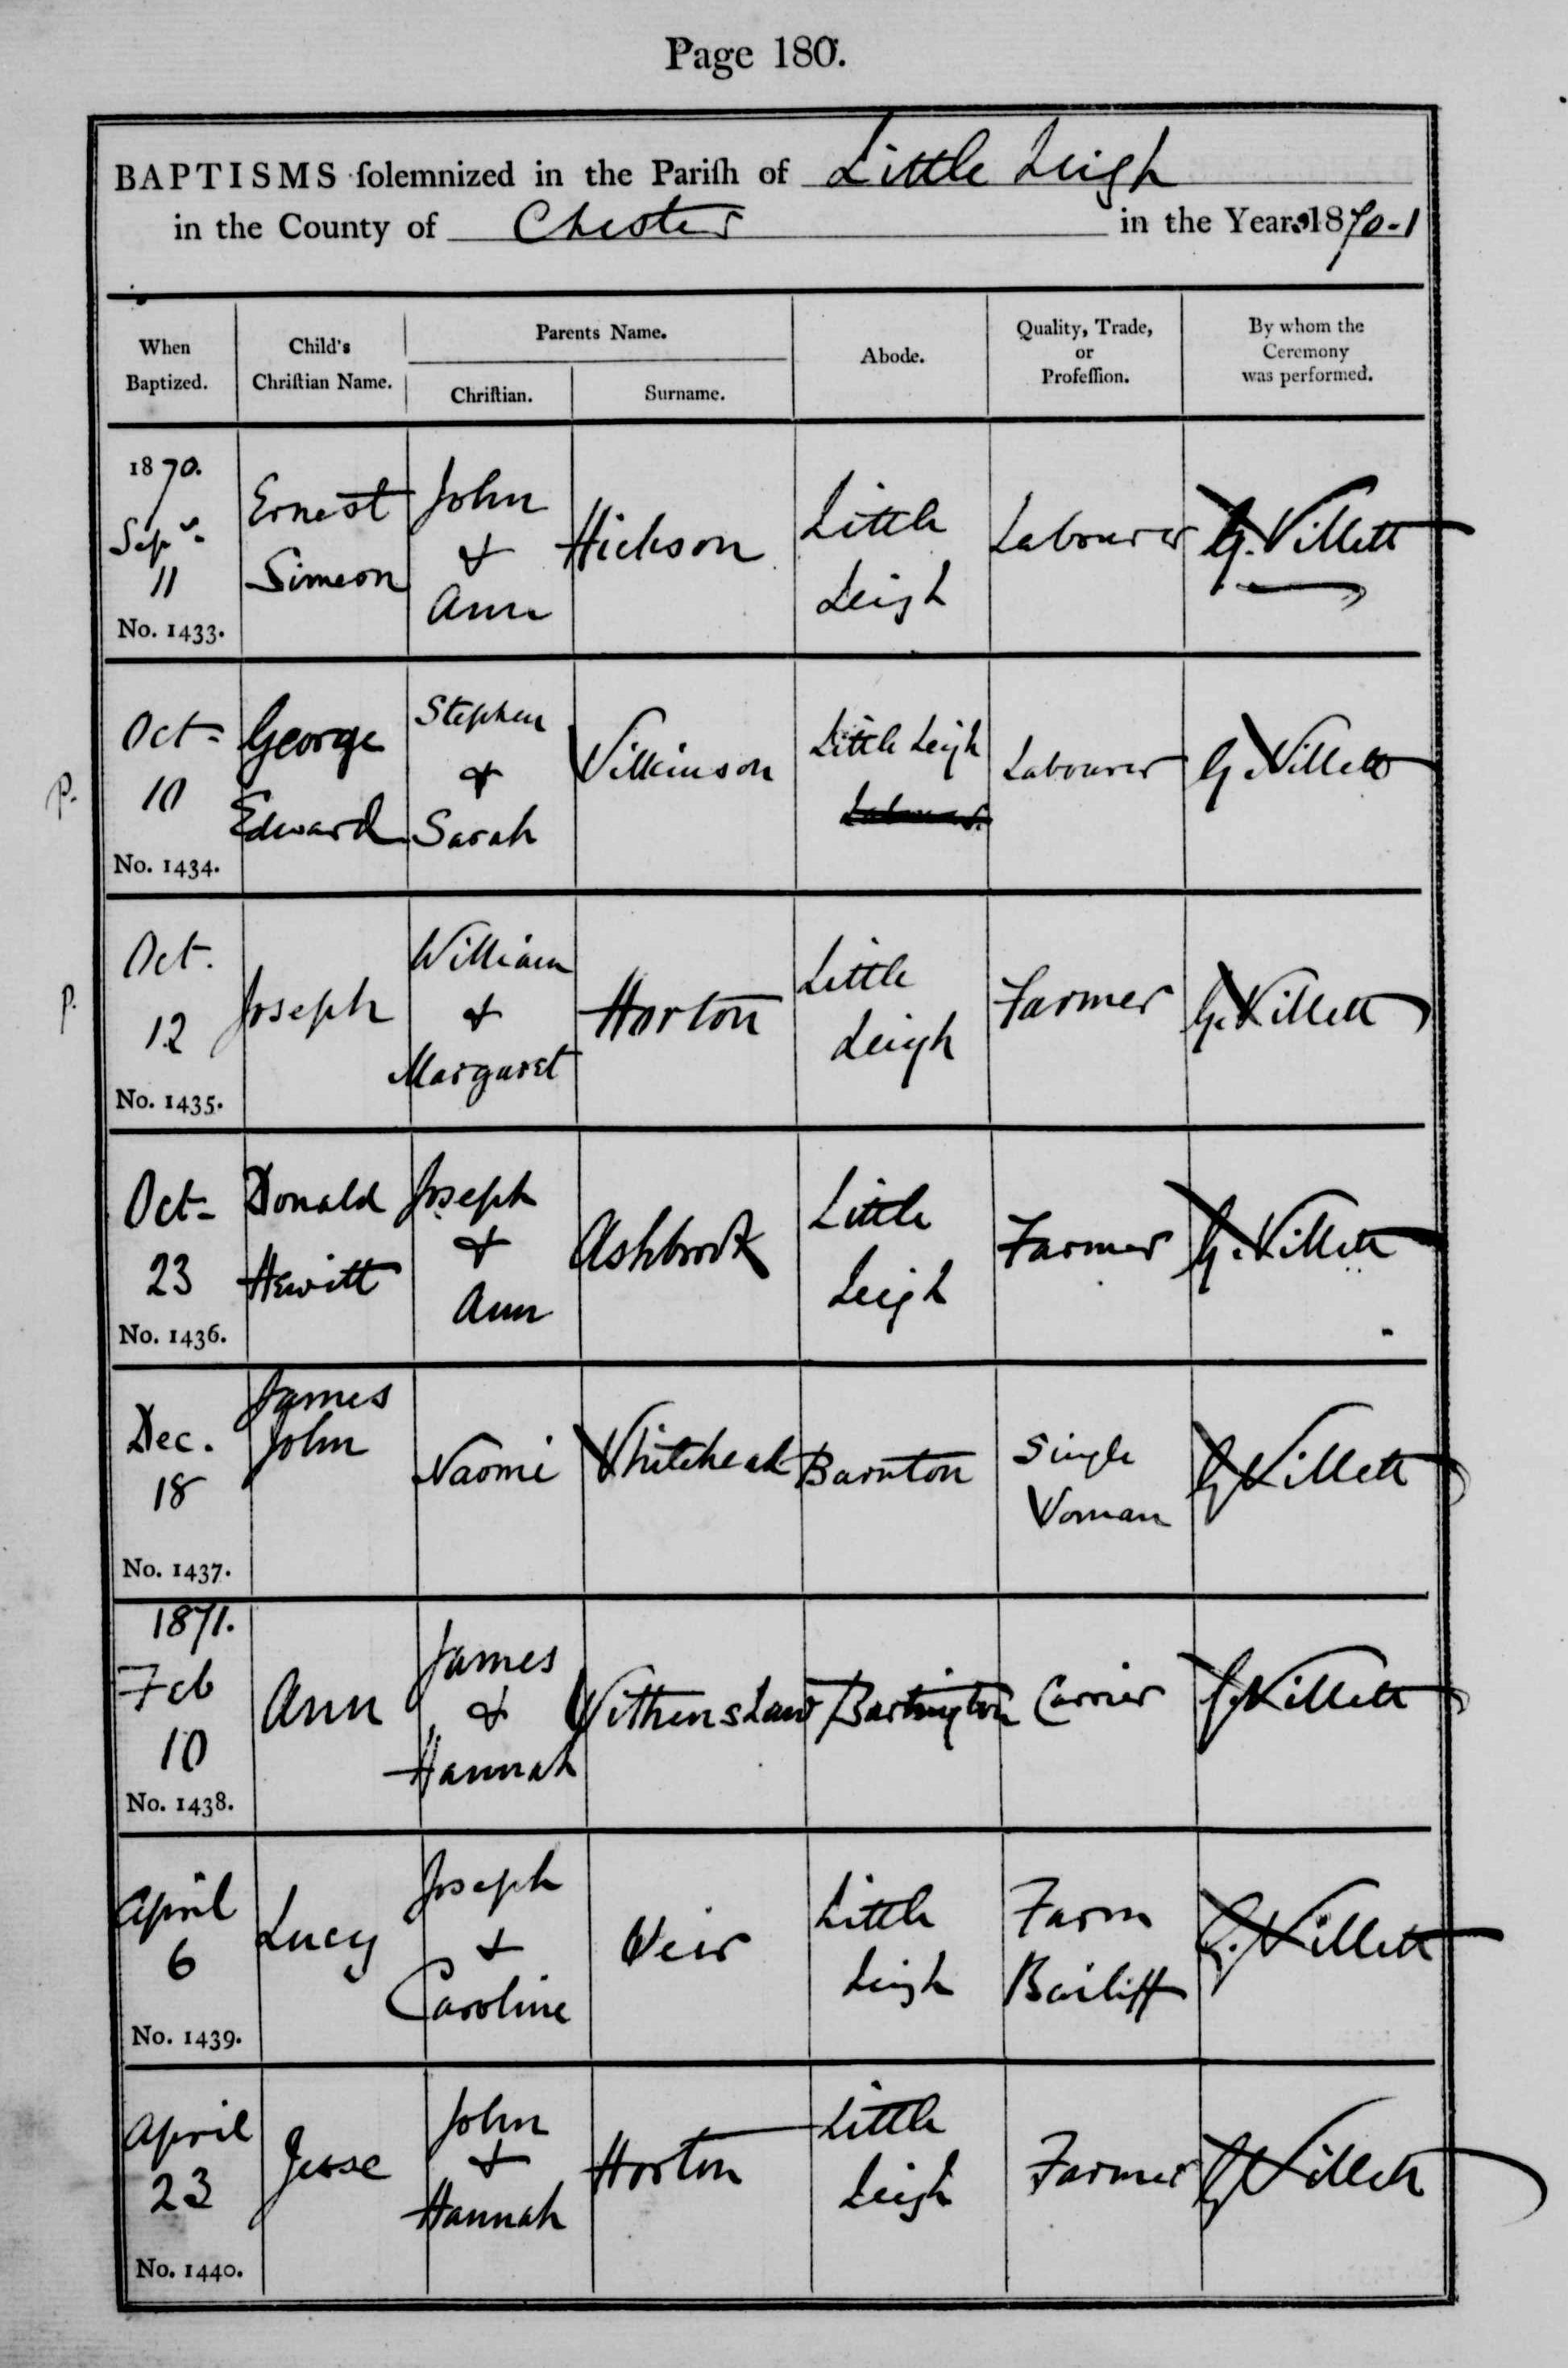 Page 180.
BAPTISMS ſolemnized in the Pariſh of Little Leigh
in the County of Chester in the Years 1870-1
When Baptized.
Child's Chriſtian Name.
Parents Name.
Chriſtian.
Surname.
Abode.
Quality, Trade, or Profeſſion.
By whom the Ceremony was performed.
1870.
Sepr.
11
No. 1433.
Ernest
Simeon
John
&
Ann
Hickson
Little
Leigh
Labourer
G. Willett
P.
Oct-
10
No. 1434.
George
Edward
Stephen
&
Sarah
Wilkinson
Little Leigh
Labourer
G. Willett
P.
Oct.
12
No. 1435.
Joseph
William
&
Margaret
Horton
Little
Leigh
Farmer
G. Willett
Oct-
23
No. 1436.
Donald
Hewitt
Joseph
&
Ann
Ashbrook
Little
Leigh
Farmer
G. Willett
Dec.
18
No. 1437.
James
John
Naomi
Whitehead
Barnton
Single
Woman
G Willett
1871.
Feb
10
No. 1438.
Ann
James
&
Hannah
Withenshaw
Bartington
Carrier
G. Willett
April
6
No. 1439.
Lucy
Joseph
&
Caroline
Weir
Little
Leigh
Farm
Bailiff
G. Willett
April
23
No. 1440.
Jesse
John
&
Hannah
Horton
Little
Leigh
Farmer
G Willett